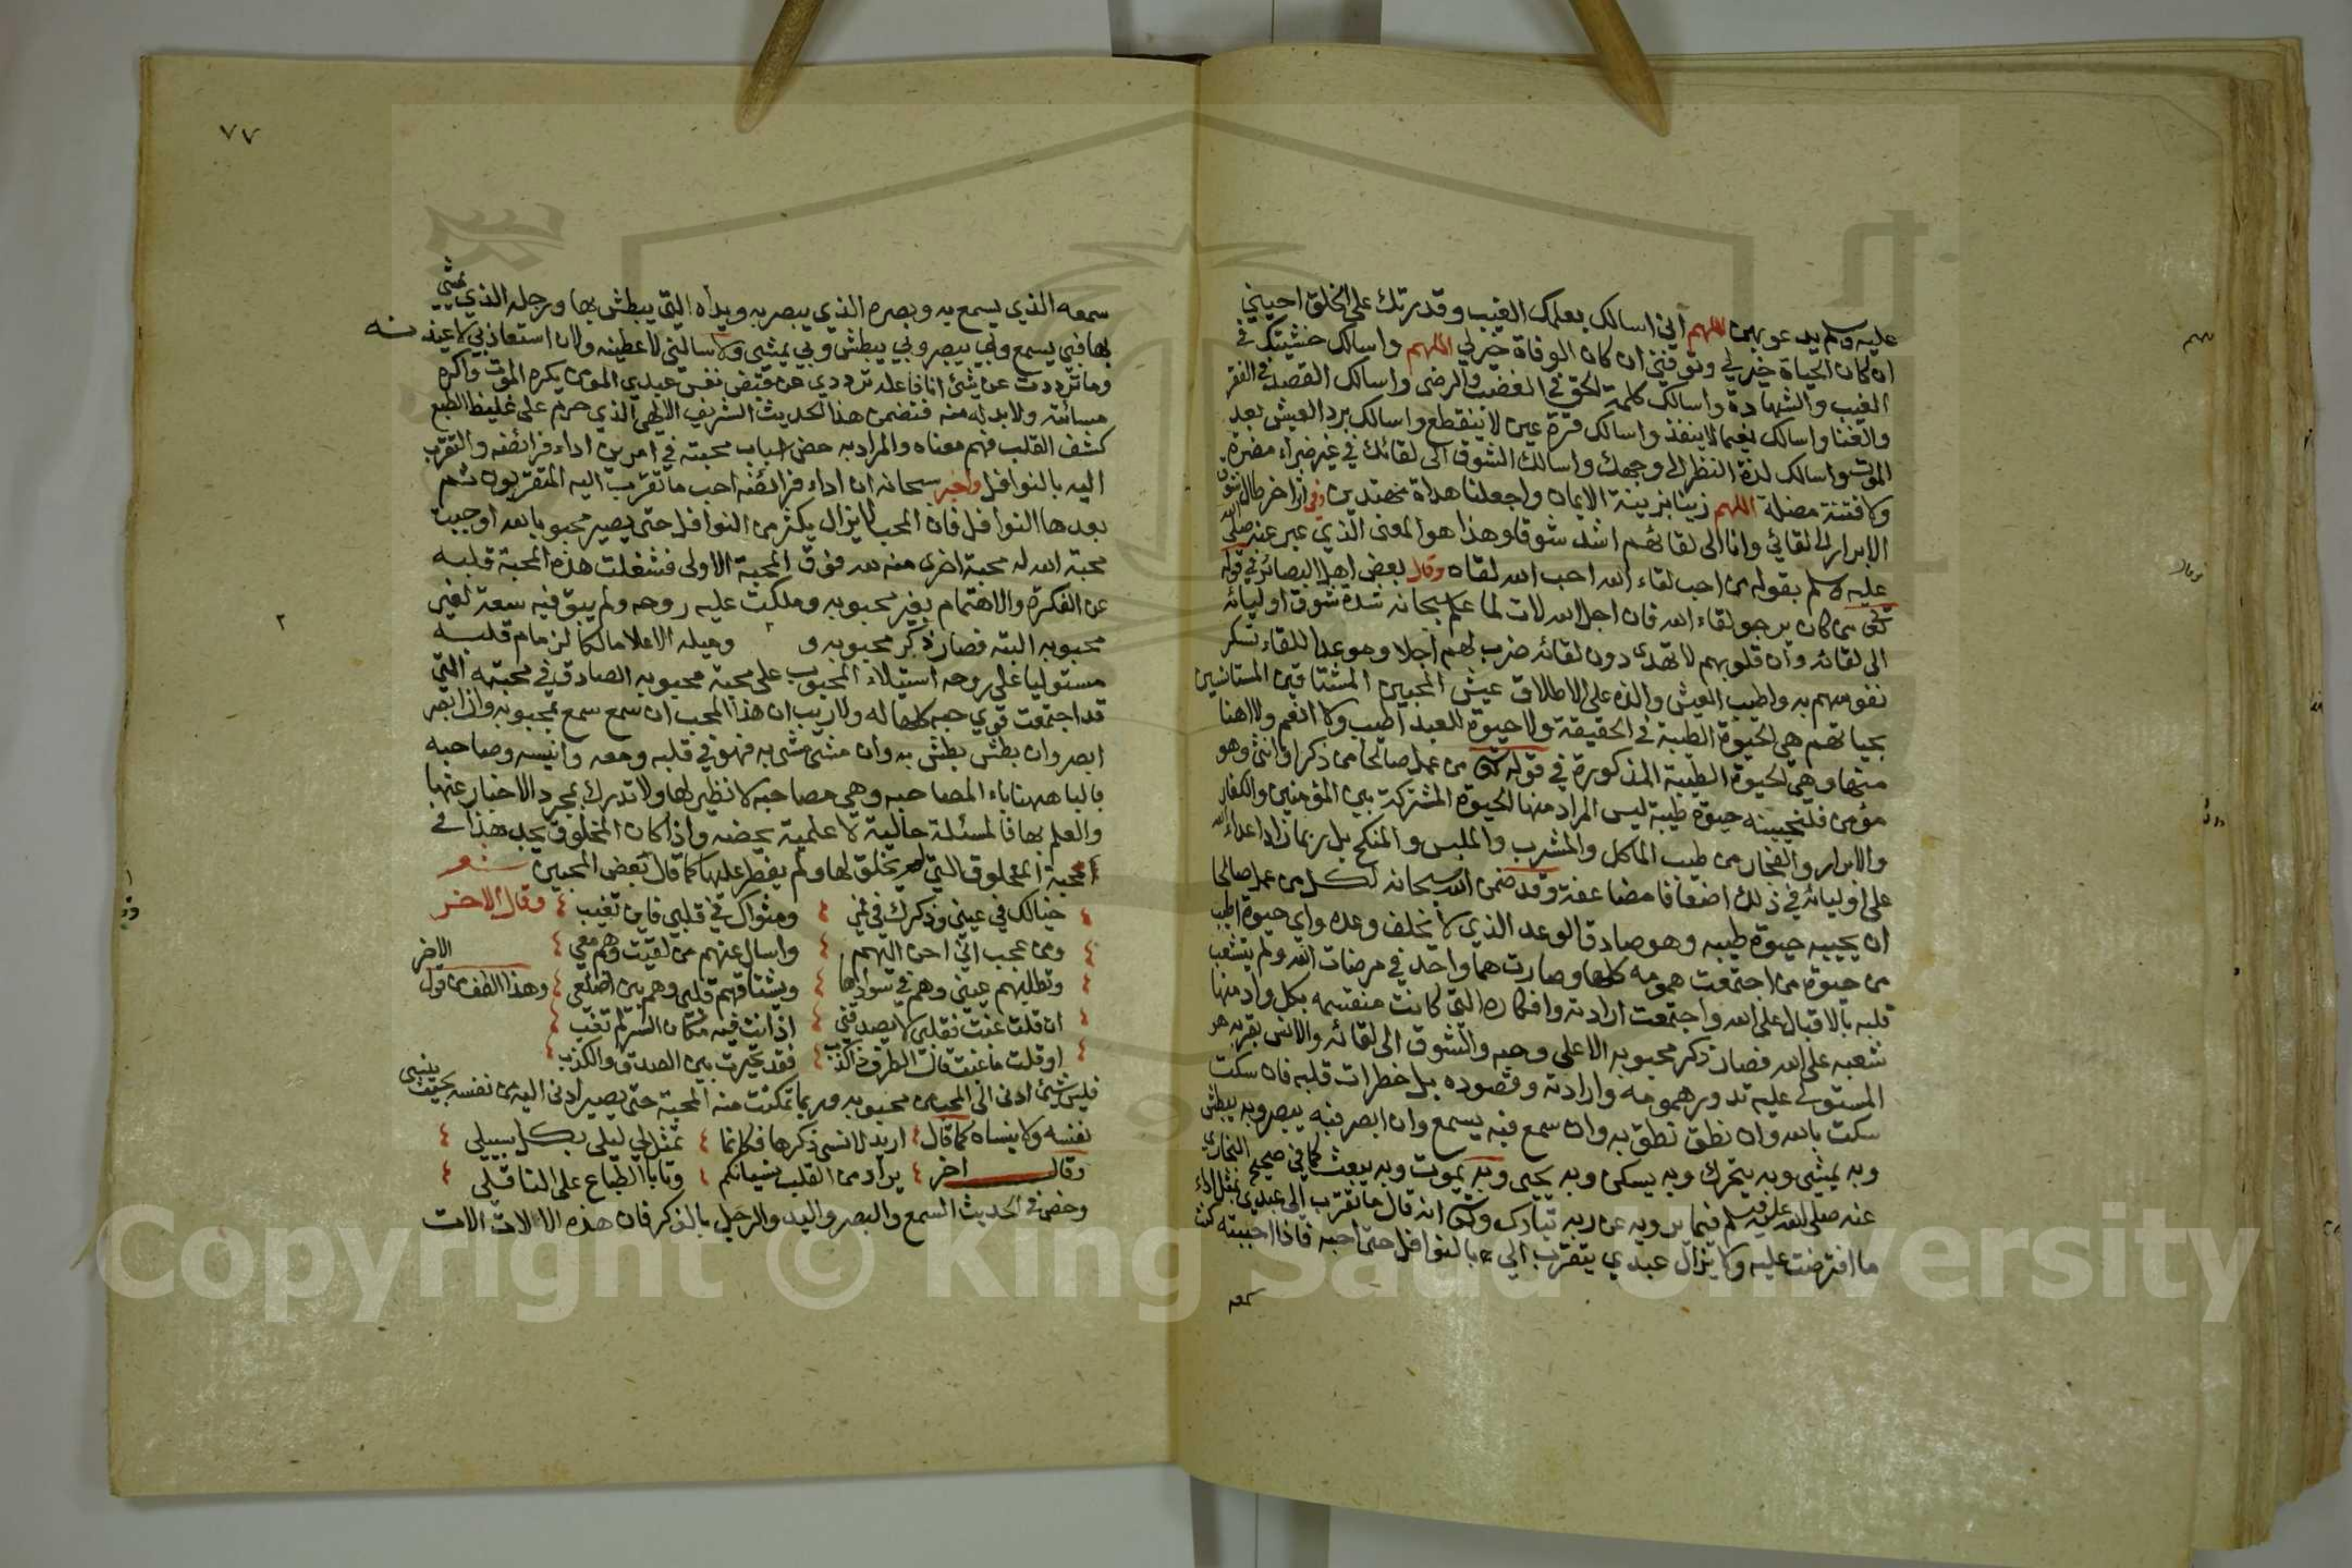 عليه وسلم يدعو بهن اللهم اني اسالك بعلمك الغيب وقدرتك على الخلق احييني
ان كان الحياة خير لي وتوفني ان كان الوفاة خير لي اللهم واسالك خشيتك في
الغيب والشهادة واسالك كلمة الحق في الغضب والرضى واسالك القصد في الفقر
والغنا واسالك نعيما لا ينفذ واسالك قرة عين لا تنقطع واسالك برد العيش بعد
الموت واسالك لذة النظر الى وجهك واسالك الشوق الى لقائك في غير ضراء مضرة
ولا فتنة مضلة اللهم زينا بزينة الايمان واجعلنا هداة مهتدين وفي اثر اخر طال شوق
الابرار الى لقائي وانا الى لقائهم اشد شوقا وهذا هو المعنى الذي عبر عنه صلى الله
عليه وسلم بقوله من احب لقاء الله احب الله لقاه وقال بعض اهل البصائر في قوله
تعالى من كان يرجو لقاء الله فان اجل الله لات لما علم سبحانه شدة شوق اوليائه
الى لقائه وان قلوبهم لا تهدى دون لقائه ضرب لهم اجلا وموعدا للقاء تسكن
نفوسهم به واطيب العيش والذه على الاطلاق عيش المحبين المشتاقين المستانسين
بحياتهم هي الحيوة الطيبة في الحقيقة ولا حيوة للعبد اطيب ولا انعم ولا اهنا
منها وهي الحيوة الطيبة المذكورة في قوله تعالى من عمل صالحا من ذكر او انثى وهو
مؤمن فلنحيينه حيوة طيبة ليس المراد منها الحيوة المشتركة بين المؤمنين والكفار
والابرار والفجار من طيب الماكل والمشرب والملبس والمنكح بل ربما زاد اعداء الله
على اوليائه في ذلك اضعافا مضاعفة وقد ضمن الله سبحانه لكل من عمل صالحا
ان يحييه حيوة طيبه وهو صادق الوعد الذي لا يخلف وعده واي حيوة اطيب
من حيوة من اجتمعت همومه كلها وصارت هما واحد في مرضات الله ولم يتشعب
قلبه بالاقبال على الله واجتمعت ارادته وافكاره التي كانت منقسمه بكل واد منها
شعبه على الله فصار ذكر محبوبه الاعلى وحبه والشوق الى لقائه والانس بقربه هو
المستولى عليه تدور همومه وارادته وقصوده بل خطرات قلبه فان سكت
سكت بالله وان نطق نطق به وان سمع فبه يسمع وان ابصر فبه يبصر وبه يبطش
وبه يمشي وبه يتحرك وبه يسكن وبه يحيى وبه يموت وبه يبعث كما في صحيح البخاري
عنه صلى الله عليه وسلم فيما يرويه عن ربه تبارك وتعالى انه قال ما تقرب الى عبدي بمثل اداء
ما افترضت عليه ولا يزال عبدي يتقرب الي بالنوافل حتى احبه فاذا احببته كنت
سمعه
٧٧
سمعه الذي يسمع به وبصره الذي يبصر به ويداه التي يبطش بها ورجله الذي يمشي
بها فبي يسمع وبي يبصر وبي يبطش وبي يمشي ولان سالني لاعطينه ولان استعاذ بي لاعيذنه
وما ترددت عن شئ انا فاعله ترددي عن قبض نفس عبدي المؤمن يكره الموت واكره
مسائته ولا بد له منه فتضمن هذا الحديث الشريف الالهي الذي حرم على غليظ الطبع
كشف القلب فهم معناه والمراد به حصر اسباب محبته في امرين اداء فرائضه والتقرب
اليه بالنوافل واخبر سبحانه ان اداء فرائضه احب ما تقرب اليه المتقربون ثم
بعدها النوافل فان المحب لا يزال يكثر من النوافل حتى يصير محبوبا بعد اوجبت
محبة الله له محبة اخرى منه لله فوق المحبة الاولى فشغلت هذه المحبة قلبه
عن الفكرة والاهتمام بغير محبوبه وملكت عليه روحه ولم يبق فيه سعة لغير
محبوبه البته فصار ذكر محبوبه و ٢ وميله الاعلا مالكا لزمام قلبه
مستوليا على روحه استيلاء المحبوب على محبة محبوبه الصادق في محبته التي
قد اجتمعت قوى حبه كلها له ولا ريب ان هذا المحب ان سمع سمع بمحبوبه وان ابصر
ابصر وان بطش بطش به وان مشى مشى به فهو في قلبه ومعه وانيسه وصاحبه
فالبا ههنا باء المصاحبه وهي مصاحبه لا نظير لها ولا تدرك بمجرد الاخبار عنها
والعلم بها فالمسئلة حالية لا علمية محضه واذا كان المخلوق يجد هذا في
محبة المخلوق التي لم يخلق لها ولم يفطر عليها كما قال بعض المحبين شعر
خيالك في عيني وذكرك في فمي ومثواك في قلبي فاين تغيب وقال الاخر
ومن عجب اني احن اليهم واسال عنهم من لقيت وهم معي
وتطلبهم عيني وهم في سوادها ويشتاقهم قلبي وهم بين اضلعي وهذا الطف من قول الاخر
ان قلت غبت فقلبي لا يصدقني اذ انت فيه مكان السر لم تغب
او قلت ما غبت قال الطرف ذا كذب فقد تحيرت بين الصدق والكذب
فليس شئ ادنى الى المحب من محبوبه وربما تمكنت منه المحبة حتى يصير ادنى اليه من نفسه بحيث ينسى
نفسه ولا ينساه كما قال اريد لانسى ذكرها فكانما تمثل لي ليلى بكل سبيل
وقال اخر يراد من القلب نسيانكم وتابا الطباع على الناقل
وخص في الحديث السمع والبصر واليد والرجل بالذكر فان هذه الالات الات
Copyright © King Saud University